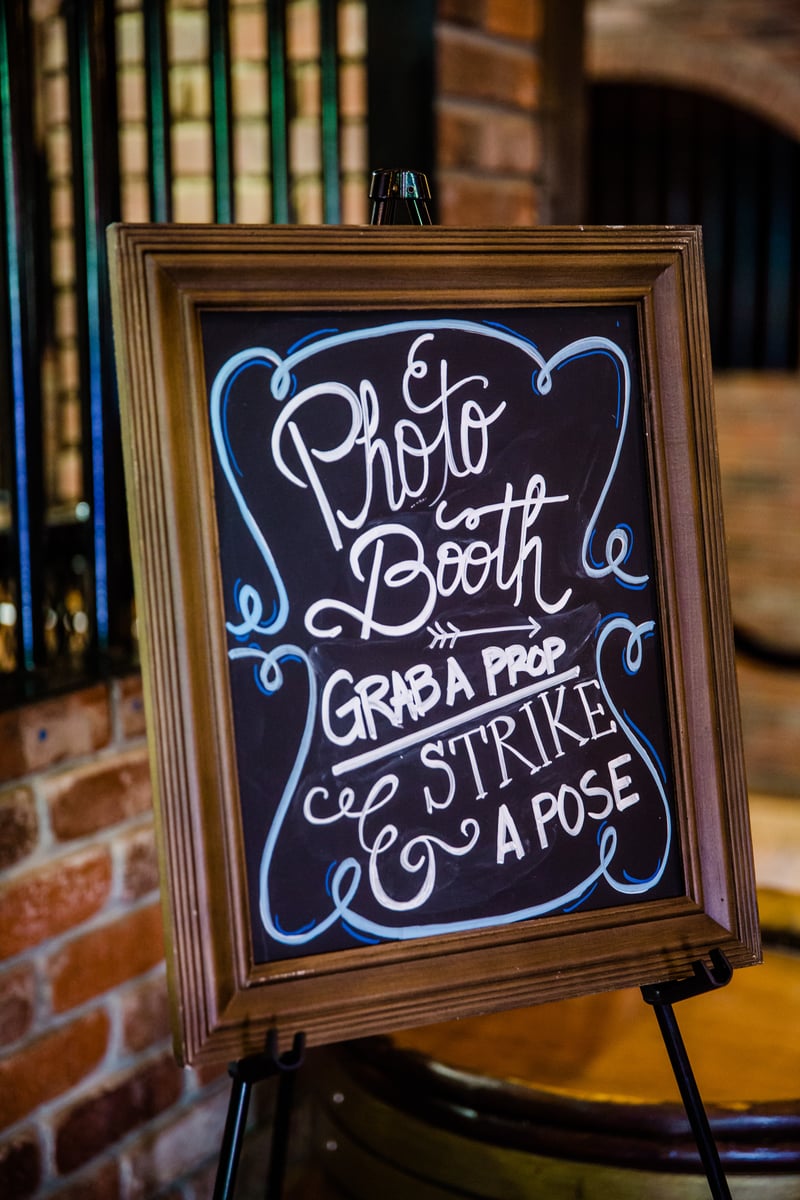 Photo
Booth
GRAB A PROP
& STRIKE
A POSE